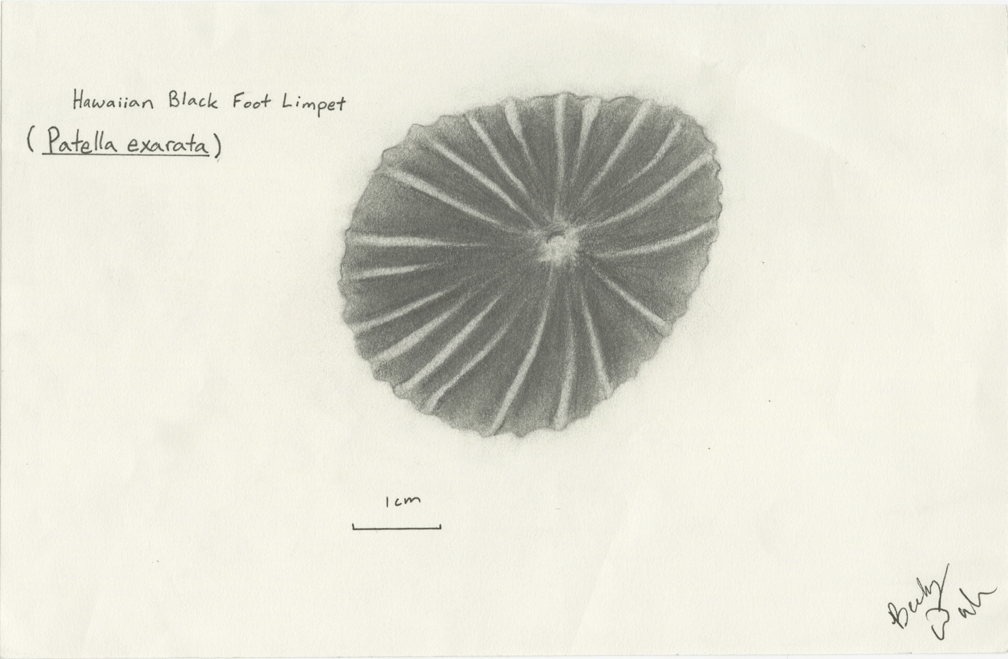 Hawaiian Black Foot Limpet
(Patella exarata)
1cm